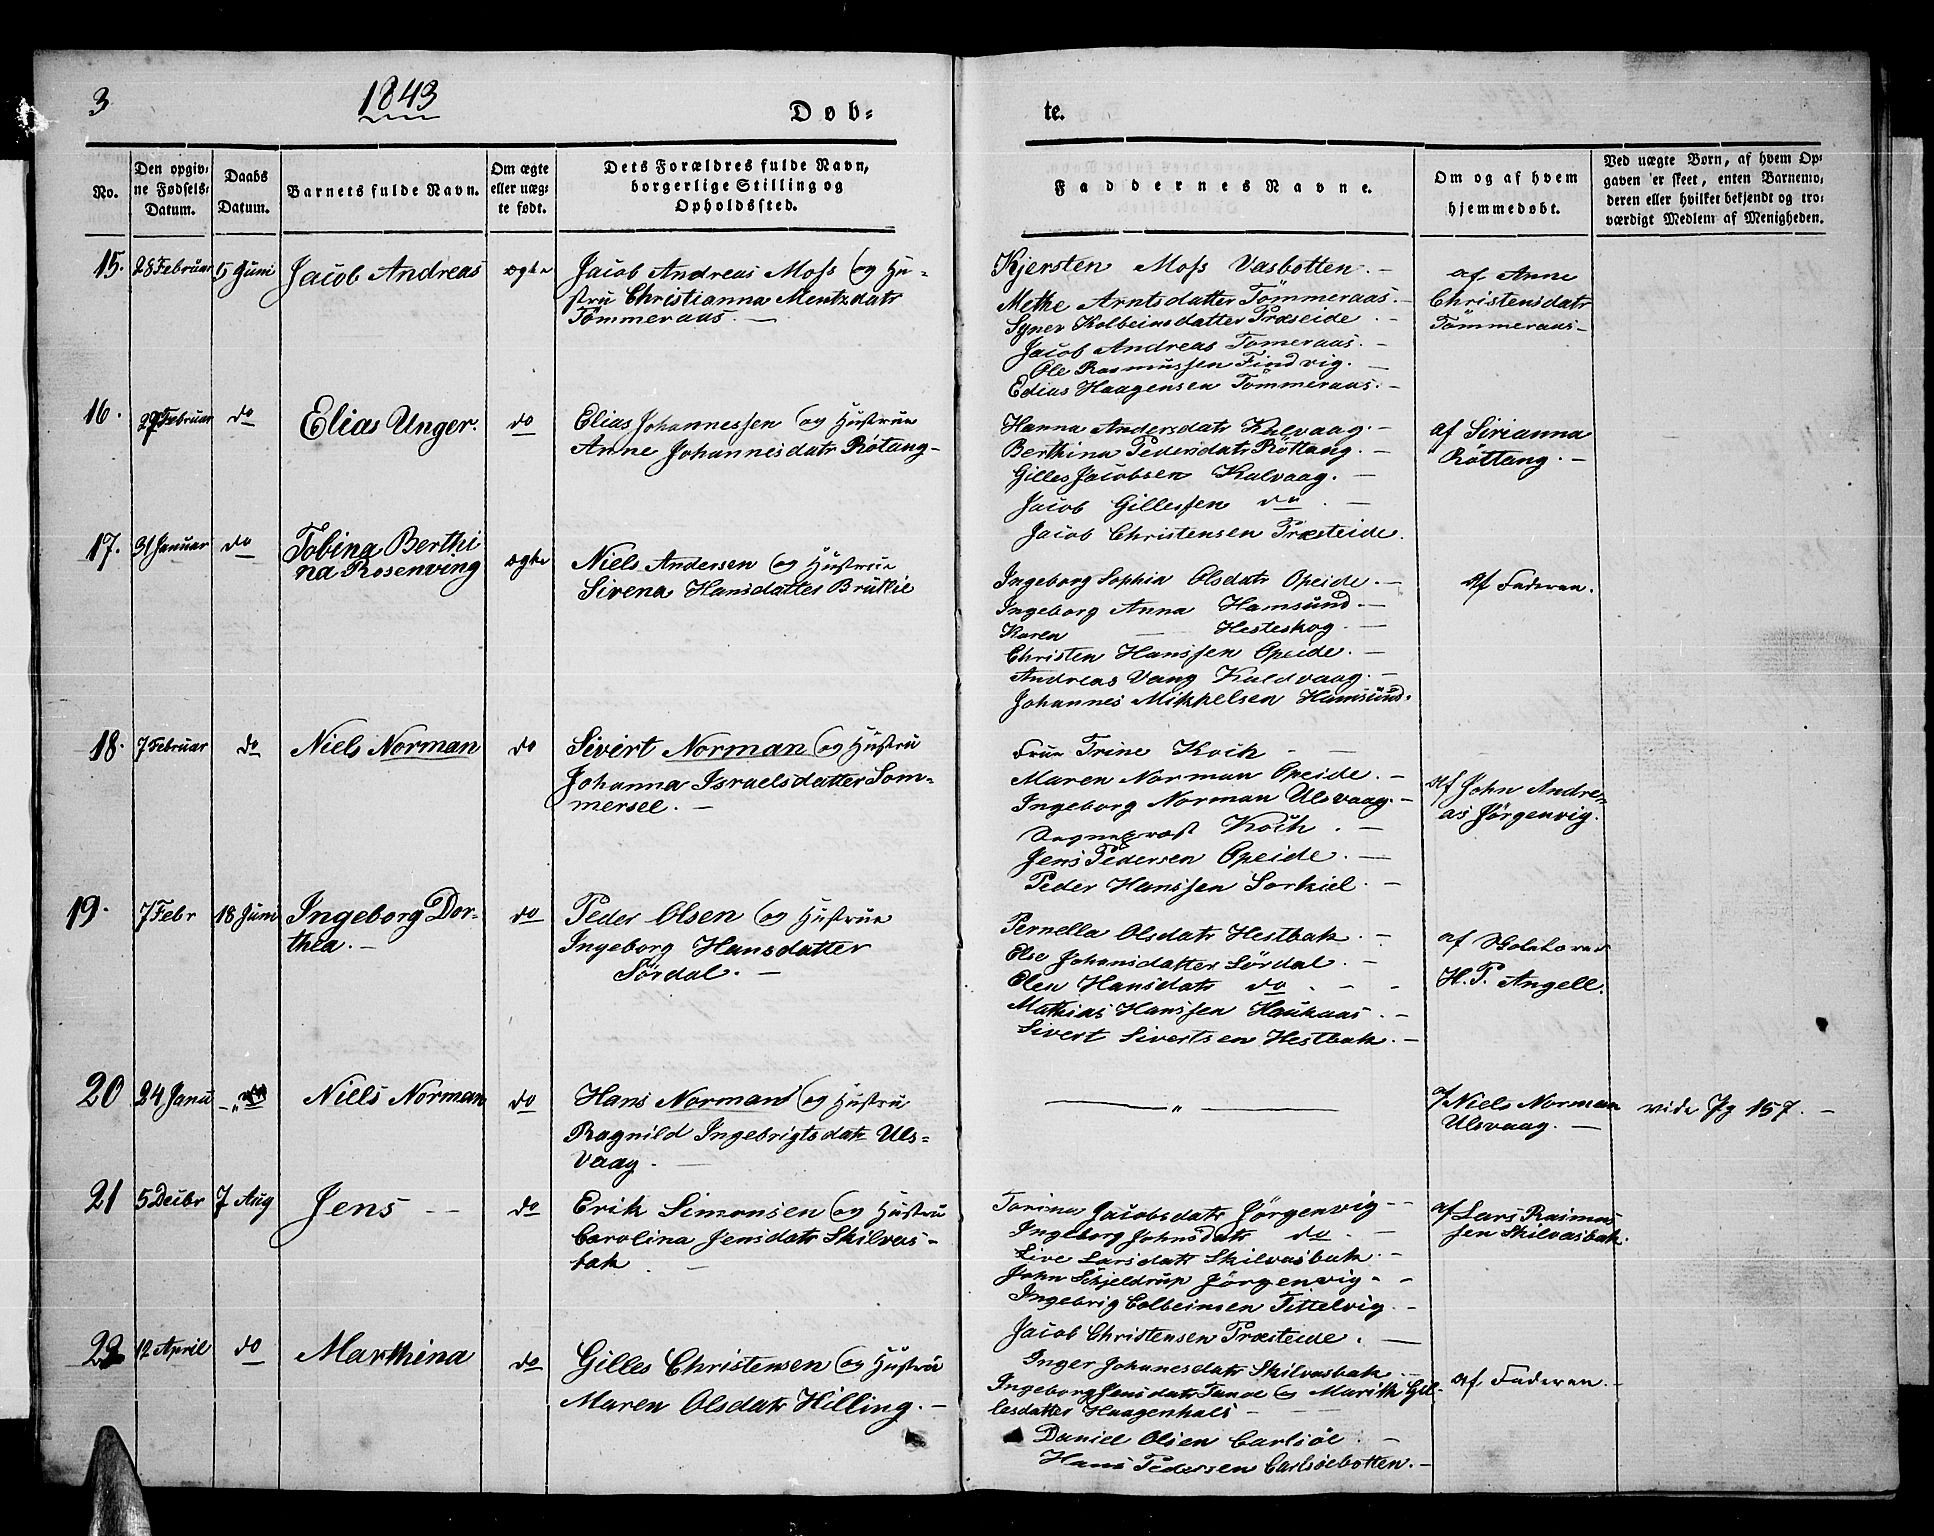 3
1843
Døb-
te.
No.
Den opgiv-
ne Fødsels-
Datum.
Daabs
Datum.
Barnets fulde Navn.
Om ægte
eller uæg-
te født.
Dets Forældres fulde Navn,
borgerlige Stilling og
Opholdssted.
Faddernes Navne.
Om og af hvem
hjemmedøbt.
Ved uægte Børn, af hvem Op-
gaven er skeet, enten Barnemo-
deren eller hvilket bekjendt og tro-
værdigt Medlem af Menigheden.
15.
28 Februar
5 Juni
Jacob Andreas
ægte
Jacob Andreas Moss og Hu-
stru Christianna Mentzdatr
Tømmeraas. —
Kjersten Moss Vasbotten. —
Methe Arntsdatter Tömmeraas. —
Syner Kolbeinsdatter Præseide. —
Jacob Andreas Tömeraas. —
Ole Rasmussen Findvig. —
Edias Haagensen Tömmeraas. —
af Anne
Christensdatr
Tömmeraas —
16.
27 Februar
do
Elias Unger.
do
Elias Johannessen og Hustrue
Anne Johannisdatr Rötang —
Hanna Andersdatr Kulvaag. —
Berthina Pedersdatr Röttang. —
Gilles Jacobsen Kulvaag. —
Jacob Gillessen do. —
Jacob Christensen Træsteide.
af Sirianna
Röttang. —
17.
31 Januar
do
Tobina Berthi
na Rosenving
ægte
Niels Andersen og Hustrue
Sirena Hansdatter
Ingeborg Sophia Olsdatr Opeide. —
Ingeborg Anna Hamsund. —
Karen — Hesteskog. —
Christen Hanssen Opeide. —
Andreas Vang Kuldvaag. —
Johannes Mikkelsen Hamsund.
af Faderen.
18.
7 Februar
do
Niels Norman
do
Sivert Norman og Hustru
Johanna Israelsdatter Som-
mersee. —
Frue Trine Koch — —
Maren Norman Opeide. —
Ingeborg Norman Ulsvaag. —
Sognepræst Koch. —
Jens Pedersen Opeide. —
Peder Hanssen Sorkiel. —
af John Andre-
as Jörgenvig.
19.
7 Febr
18 Juni
Ingeborg Dor-
thea. —
do
Peder Olsen og Hustrue
Ingeborg Hansdatter
Sördal. —
Pernella Olsdatr Hestbak. —
Else Johansdatter Sördal. —
Elen Hansdatr do. — —
Mathias Hanssen Haukaas. —
Sivert Sivertsen Hestbak. —
af Skolelærer
H. P. Angell.
20
24 Janu
do
Niels Norman
do
Hans Norman og Hustru
Ragnild Ingebrigtsdatr Uls-
vaag. —
— „ —
af Niels Norman
Ulsvaag. —
vide Pg 157. —
21
5 Decbr
7 Aug
Jens — —
do
Erik Simonsen og Hustru
Carolina Jensdatr Skilvas-
bak. —
Torina Jacobsdatr Jörgenvig —
Ingeborg Johnsdatr do. —
Live Larsdatr Skilvasbak. —
John Schjeldrup Jörgenvig. —
Ingebrig Colbeinsen Tittelvig. —
Jacob Christensen Træsteide. —
af Lars Rasmus-
sen Skilvasbak.
22
12 April
do
Marthina
do
Gilles Christensen og Hustru
Maren Olsdatr Hilling. —
Inger Johanesdatr Skilvasbak —
Ingeborg Jensdatr Tanoe og Marith Gil-
lesdatter Haagenhals — —
Daniel Olsen Carlsöe. —
Hans Pedersen Carlsöebotten. —
af Faderen. —